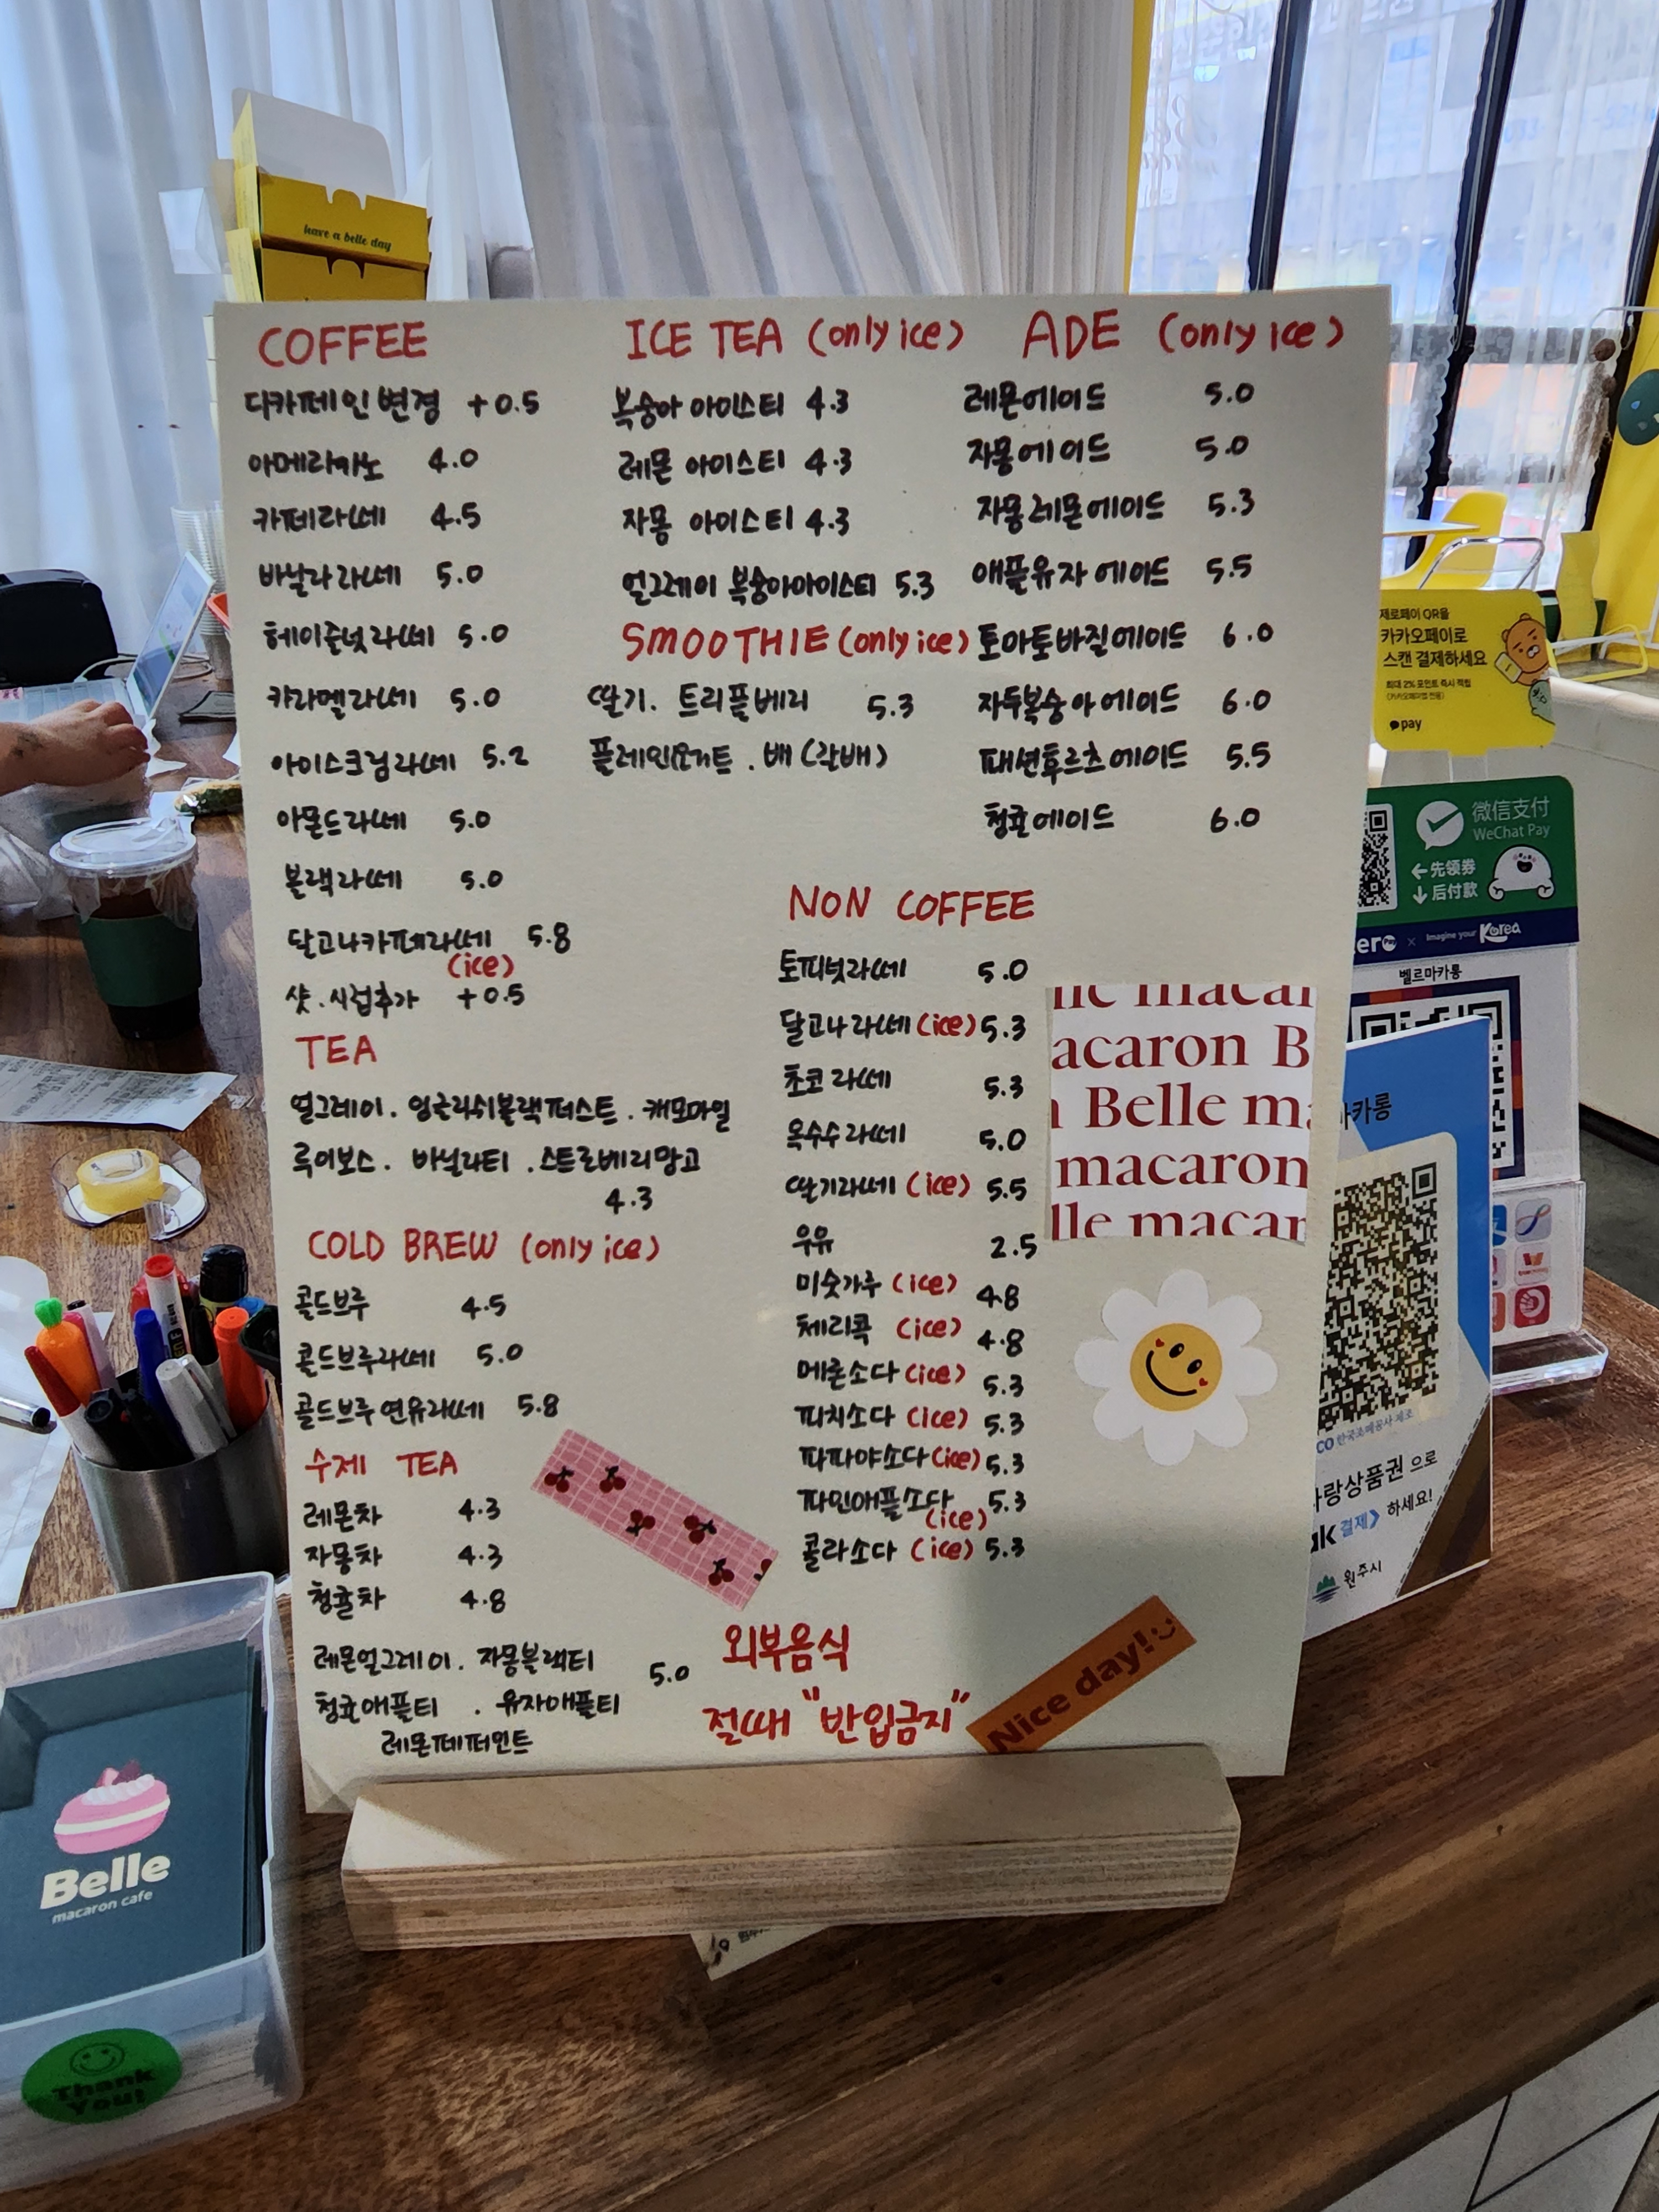 have a belle day
COFFEE
디카페인 변경 +0.5
아메리카노 4.0
카페라떼 4.5
바닐라라떼 5.0
헤이즐넛라떼 5.0
카라멜라떼 5.0
아이스크림라떼 5.2
아몬드라떼 5.0
블랙라떼 5.0
달고나카페라떼 5.8
(ice)
샷.시럽추가 +0.5
TEA
얼그레이. 잉글리쉬블랙퍼스트. 캐모마일
루이보스. 바닐라티. 스트로베리망고
4.3
COLD BREW (only ice)
콜드브루 4.5
콜드브루라떼 5.0
콜드브루연유라떼 5.8
수제 TEA
레몬차 4.3
자몽차 4.3
청귤차 4.8
레몬얼그레이. 자몽블랙티 5.0
청귤애플티 . 유자애플티
레몬페퍼민트
ICE TEA (only ice)
복숭아 아이스티 4.3
레몬 아이스티 4.3
자몽 아이스티 4.3
얼그레이 복숭아아이스티 5.3
SMOOTHIE (only ice)
딸기. 트리플베리 5.3
플레인요거트. 배 (갈배)
ADE (only ice)
레몬에이드 5.0
자몽에이드 5.0
자몽레몬에이드 5.3
애플유자에이드 5.5
토마토바질에이드 6.0
자두복숭아에이드 6.0
패션후르츠에이드 5.5
청귤에이드 6.0
NON COFFEE
토피넛라떼 5.0
달고나라떼 (ice) 5.3
초코라떼 5.3
옥수수라떼 5.0
딸기라떼 (ice) 5.5
우유 2.5
미숫가루 (ice) 4.8
체리콕 (ice) 4.8
메론소다 (ice) 5.3
피치소다 (ice) 5.3
파파야소다 (ice) 5.3
파인애플소다 5.3
(ice)
콜라소다 (ice) 5.3
외부음식
절때 "반입금지"
Nice day!
acaron B
Belle m
macaron
lle macar
제로페이 QR을
카카오페이로
스캔 결제하세요
최대 2% 포인트 즉시 적립
pay
微信支付
WeChat Pay
←先领券
↓后付款
Imagine your Korea
벨르마카롱
마카롱
한국조폐공사 제조
사랑상품권 으로
ak 결제 하세요!
원주시
Belle
macaron cafe
Thank
You!